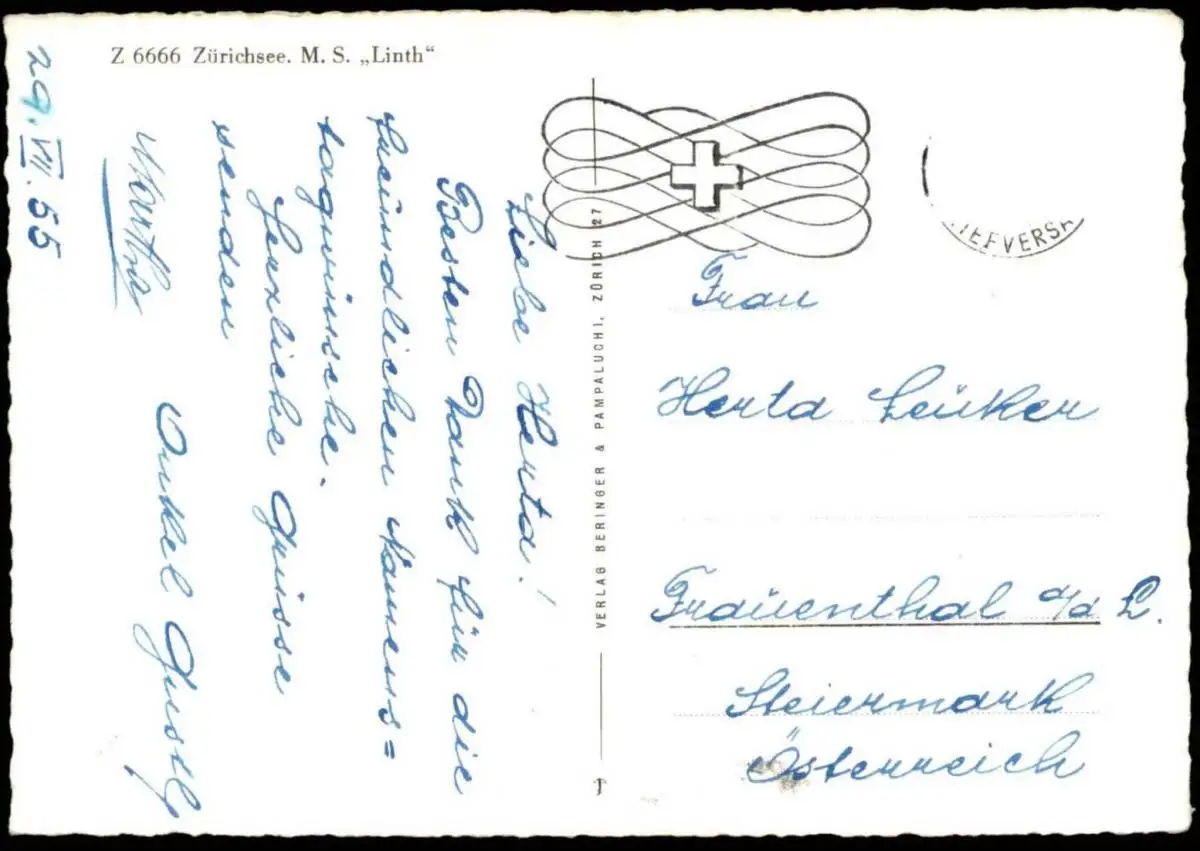 Z 6666 Zürichsee. M. S. „Linth“
29. VII. 55
Liebe Herta!
Besten Dank für die
freundlichen Namens=
tagwünsche.
Herzliche Grüsse
senden
Onkel Gustl
Martha
VERLAG BERINGER & PAMPALUCHI, ZÜRICH 27
IEFVERSA
Frau
Herta Leuker
Frauenthal a/d L.
Steiermark
Österreich